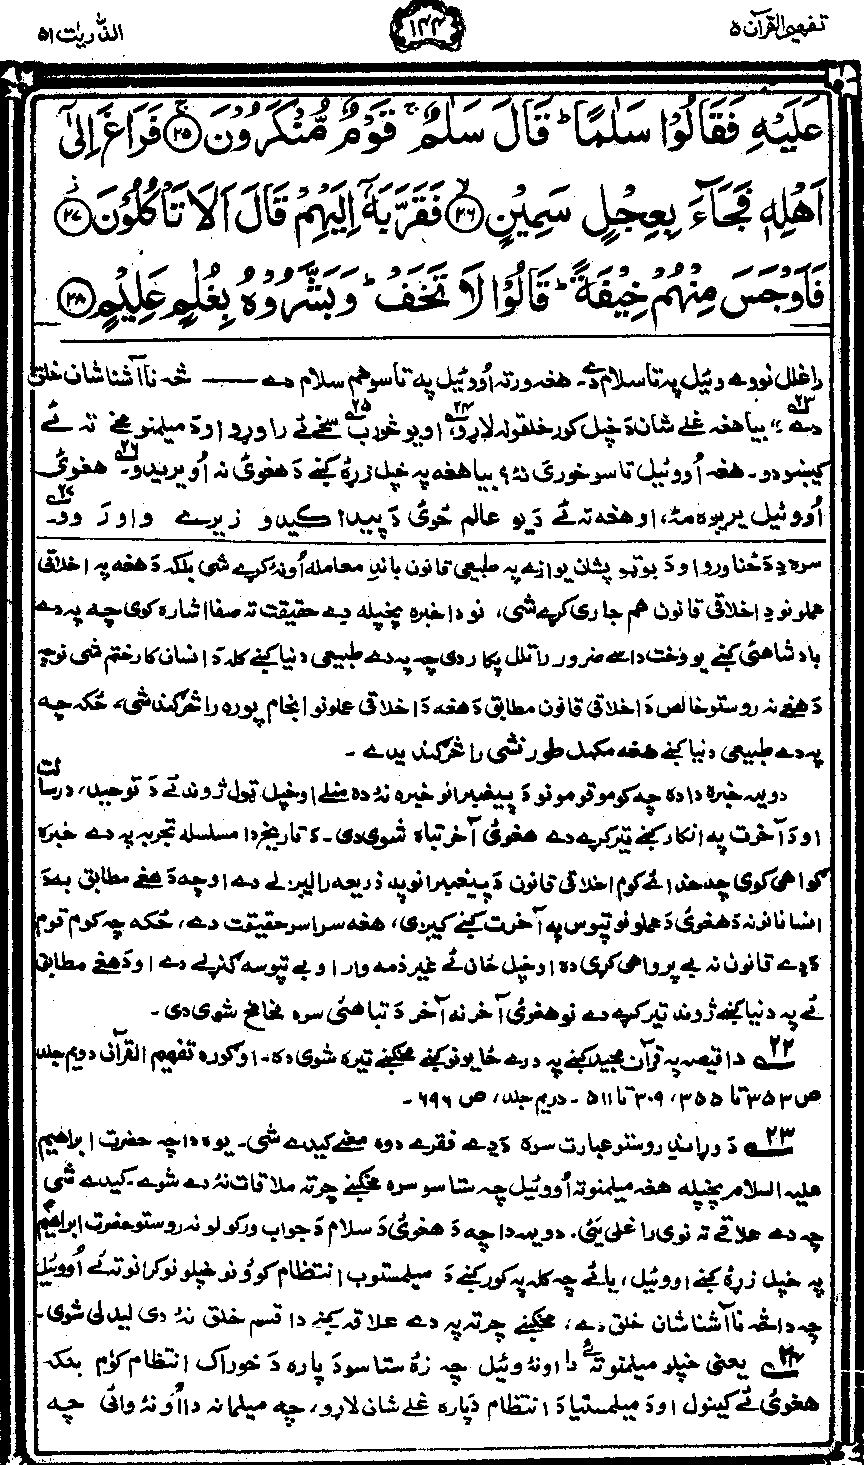 تفهيم القرآن ۵
۱۴۴
الذّٰريٰت ۵۱
عَلَيْهِ فَقَالُوْا سَلٰمًا ؕ قَالَ سَلٰمٌ ۚ قَوْمٌ مُّنْكَرُوْنَ ۚ ﴿۲۵﴾ فَرَاغَ اِلٰٓى
اَهْلِهٖ فَجَآءَ بِعِجْلٍ سَمِيْنٍ ۙ ﴿۲۶﴾ فَقَرَّبَهٗٓ اِلَيْهِمْ قَالَ اَلَا تَاْكُلُوْنَ ۡ ﴿۲۷﴾
فَاَوْجَسَ مِنْهُمْ خِيْفَةً ؕ قَالُوْا لَا تَخَفْ ؕ وَبَشَّرُوْهُ بِغُلٰمٍ عَلِيْمٍ ﴿۲۸﴾
راغلل نو وے وئيل په تاسلام دے۔ هغه ورته اُووئيل په تاسو هم سلام دے —— څه ناآشنا شان خلق
دے۲۳،، بيا هغه غلے شان دَ خپل کور خلقو له لاړو۲۴، او يو څورب۲۵ سخے ئے راوړو او دَ ميلمنو مخے ته ئے
کيښودو۔ هغه اُووئيل تاسو خورئ نهٔ؟ بيا هغه په خپل زړهٔ کښے دَ هغوئ نه اُويريدو۲۶۔ هغوئ
اُووئيل يريږه مهٔ، او هغه ته ئے دَ يو عالم ځوئ دَ پيدا کيدو زيرے واورَوو۲۷۔
سره دِ دَ ځناورو او دَ بوټو پشان يوازے په طبيعی قانون باندِ معامله اُونهٔ کړے شی بلکه دَ هغه په اخلاقی
عملونو دِ اخلاقی قانون هم جاری کړے شی، نو دا خبره پخپله دے حقيقت ته صفا اشاره کوی چه په دے
بادشاهئ کښے يو وخت داسے ضرور راتلل پکار دی چه په دے طبيعی دنيا کښے کله دَ انسان کار ختم شی نو چه
دَ هغے نه روستو خالص دَ اخلاقی قانون مطابق دَ هغه دَ اخلاقی عملونو انجام پوره راڅرګند شی، ځکه چه
په دے طبيعی دنيا کښے هغه مکمل طور نشی راڅرګنديدے۔
دويمه خبره دا ده چه کومو قومونو دَ پيغمبرانو خبره نهٔ ده منلے او خپل ټول ژوند ئے دَ توحيد، رسالت
او دَ آخرت په انکار کښے تير کړے دے هغوئ آخر تباه شوی دی۔ دَ تاريخ دا مسلسله تجربه په دے خبره
ګواهی کوی چه خدائے کوم اخلاقی قانون دَ پيغمبرانو په ذريعه راليږلے دے او چه دَ هغے مطابق به دَ
انسانانو نه دَ هغوئ دَ عملونو تپوس په آخرت کښے کيږی، هغه سراسر حقيقت دے، ځکه چه کوم قوم
دَ دے قانون نه بے پرواهی کړی ده او خپل ځان ئے غير ذمه وار او بے تپوسه ګڼلے دے او دَ هغے مطابق
ئے په دنيا کښے ژوند تير کړے دے نو هغوئ آخر نه آخر دَ تباهئ سره مخامخ شوی دی۔
۲۲ دا قيصه په قرآن مجيد کښے په درے ځايونو کښے مخکښے تيره شوی ده۔ اوګوره تفهيم القرآن دويم جلد
ص ۳۵۳ تا ۳۵۵، ۳۰۹ تا ۵۱۱۔ دريم جلد، ص ۶۹۶۔
۲۳ دَ وړاندِ روستو عبارت سره دَ دے فقرے دوه معنے کيدے شی۔ يوه دا چه حضرت ابراهيم
عليه السلام پخپله هغه ميلمنو ته اُووئيل چه ستاسو سره مخکښے چرته ملاقات نهٔ دے شوے۔ کيدے شی
چه دے علاقے ته نوی راغلی يئ. دويمه دا چه دَ هغوئ دَ سلام دَ جواب ورکولو نه روستو حضرت ابراهيمؑ
په خپل زړهٔ کښے اووئيل، يا ئے چه کله په کور کښے دَ ميلمستوب انتظام کوؤ نو خپلو نوکرانو ته ئے اُووئيل
چه دا څه ناآشنا شان خلق دے، مخکښے چرته په دے علاقه کښے دا قسم خلق نهٔ دی ليدلی شوی۔
۲۴ يعنی خپلو ميلمنو ته ئے دا اونهٔ وئيل چه زهٔ ستاسو دَ پاره دَ خوراک انتظام کوم بلکه
هغوئ ئے کينول او دَ ميلمستيا دَ انتظام دَپاره غلے شان لاړو، چه ميلمانه دا اُونهٔ وائی چه